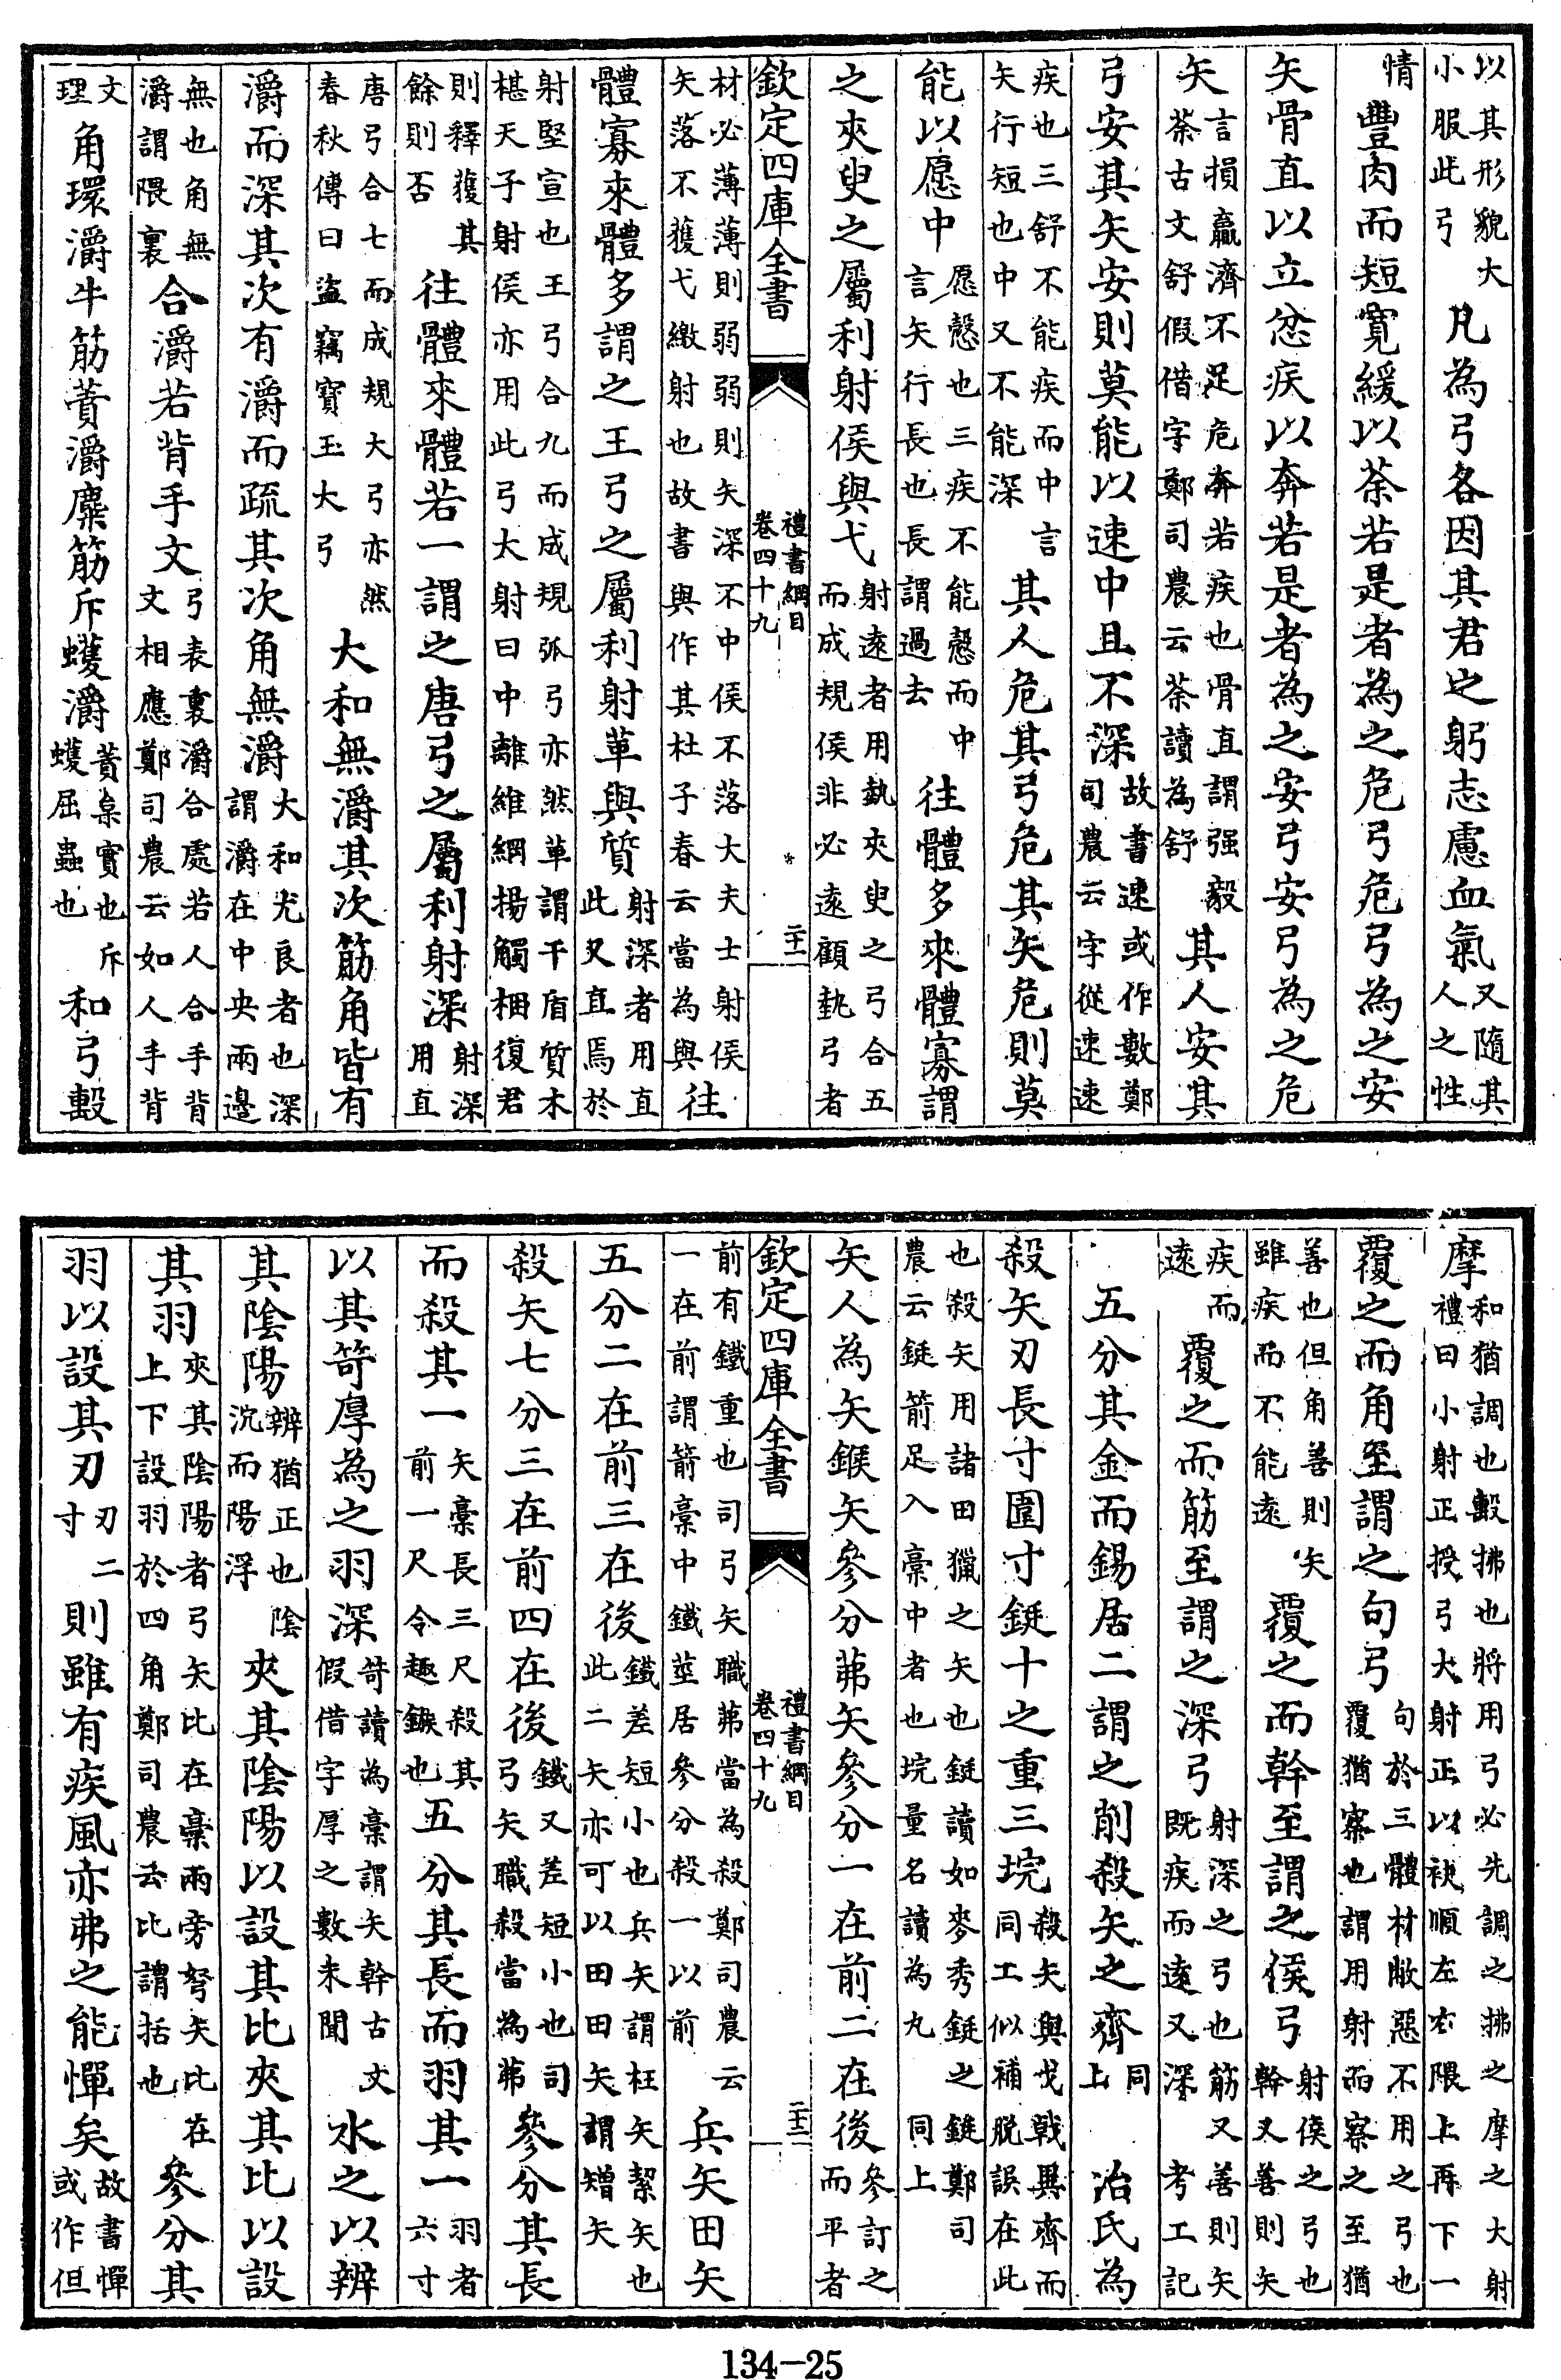 以其形貌大小服此弓凡為弓各因其君之躬志慮血氣又隨其人之性
情豐肉而短寛緩以荼若是者為之危弓危弓為之安
矢骨直以立忿疾以奔若是者為之安弓安弓為之危
矢言損贏濟不足危奔若疾也骨直謂强毅荼古文舒假借字鄭司農云荼讀為舒其人安其
弓安其矢安則莫能以速中且不深故書速或作數鄭司農云字從速速
疾也三舒不能疾而中言矢行短也中又不能深其人危其弓危其矢危則莫
能以愿中愿慤也三疾不能慤而中言矢行長也長謂過去往體多來體寡謂
之夾臾之屬利射侯與弋射遠者用埶夾臾之弓合五而成規侯非必遠顧埶弓者
欽定四庫全書 禮書綱目卷四十九 二十二
材必薄薄則弱弱則矢深不中侯不落大夫士射侯矢落不獲弋繳射也故書與作其杜子春云當為與往
體寡來體多謂之王弓之屬利射革與質射深者用直此又直焉於
射堅宣也王弓合九而成規弧弓亦然革謂干盾質木椹天子射侯亦用此弓大射曰中離維綱揚觸梱復君
則釋獲其餘則否往體來體若一謂之唐弓之屬利射深射深用直
唐弓合七而成規大弓亦然春秋傳曰盜竊寶玉大弓大和無灂其次筋角皆有
灂而深其次有灂而疏其次角無灂大和尤良者也深謂灂在中央兩邊
無也角無灂謂隈裏合灂若背手文弓表裏灂合處若人合手背文相應鄭司農云如人手背
文理角環灂牛筋蕡灂麋筋斥蠖灂蕡枲實也斥蠖屈蟲也和弓㲉
摩和猶調也㲉拂也將用弓必先調之拂之摩之大射禮曰小射正授弓大射正以袂順左右隈上再下一
覆之而角至謂之句弓句於三體材敝惡不用之弓也覆猶察也謂用射而察之至猶
善也但角善則矢雖疾而不能遠覆之而幹至謂之侯弓射侯之弓也幹又善則矢
疾而遠覆之而筋至謂之深弓射深之弓也筋又善則矢既疾而遠又深考工記
五分其金而錫居二謂之削殺矢之齊同上冶氏為
殺矢刃長寸圍寸鋌十之重三垸殺矢與戈戟異齊而同工似補脱誤在此
也殺矢用諸田獵之矢也鋌讀如麥秀鋌之鋌鄭司農云鋌箭足入稾中者也垸量名讀為丸同上
矢人為矢鍭矢參分茀矢參分一在前二在後參訂之而平者
欽定四庫全書 禮書綱目卷四十九 二十三
前有鐵重也司弓矢職茀當為殺鄭司農云一在前謂箭稾中鐵莖居參分殺一以前兵矢田矢
五分二在前三在後鐵差短小也兵矢謂枉矢絜矢也此二矢亦可以田田矢謂矰矢
殺矢七分三在前四在後鐵又差短小也司弓矢職殺當為茀參分其長
而殺其一矢稾長三尺殺其前一尺令趣鏃也五分其長而羽其一羽者六寸
以其笴厚為之羽深笴讀為稾謂矢幹古文假借字厚之數未聞水之以辨
其陰陽辨猶正也陰沉而陽浮夾其陰陽以設其比夾其比以設
其羽夾其陰陽者弓矢比在稾兩旁弩矢比在上下設羽於四角鄭司農云比謂括也參分其
羽以設其刃刃二寸則雖有疾風亦弗之能憚矣故書憚或作但
134-25